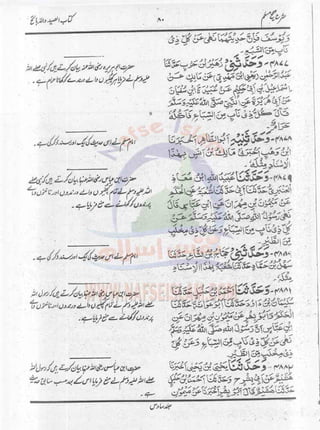 شرح صحیح مسلم
۸۰
کتاب الصید والذبائح
وَيُوسُفَ فَإِنَّ حَدِيثَهُمَا نَهَى عَنْ كُلِّ ذِي
نَابٍ مِنَ السَّبُعِ.
۴۸۷۷- وَحَدَّثَنِي زُهَيْرُ بْنُ حَرْبٍ حَدَّثَنَا
عَبْدُ الرَّحْمٰنِ يَعْنِي ابْنَ مَهْدِيٍّ عَنْ مَالِكٍ عَنْ
إِسْمَاعِيلَ بْنِ أَبِي حَكِيمٍ عَنْ عَبِيدَةَ بْنِ سُفْيَانَ
عَنْ أَبِي هُرَيْرَةَ عَنِ النَّبِيِّ صَلَّى اللهُ عَلَيْهِ وَسَلَّمَ
قَالَ كُلُّ ذِي نَابٍ مِنَ السِّبَاعِ فَأَكْلُهُ
حَرَامٌ.
حضرت ابو ہریرہ رضی اللہ عنہ بیان کرتے ہیں کہ نبی صلے اللہ
علیہ وسلم نے فرمایا ہر کچلیوں والے درندے کو کھانا حرام ہے۔
۴۸۷۸- وَحَدَّثَنِيهِ أَبُو الطَّاهِرِ أَخْبَرَنَا
ابْنُ وَهْبٍ أَخْبَرَنِي مَالِكُ بْنُ أَنَسٍ بِهٰذَا
الْإِسْنَادِ مِثْلَهُ.
امام مسلم نے اس حدیث کی ایک اور سند ذکر کی ہے۔
۴۸۷۹- وَحَدَّثَنَا عُبَيْدُ اللهِ بْنُ مُعَاذٍ
الْعَنْبَرِيُّ حَدَّثَنَا أَبِي حَدَّثَنَا شُعْبَةُ عَنِ الْحَكَمِ
عَنْ مَيْمُونِ بْنِ مِهْرَانَ عَنِ ابْنِ عَبَّاسٍ قَالَ
نَهَى رَسُولُ اللهِ صَلَّى اللهُ عَلَيْهِ وَسَلَّمَ عَنْ
كُلِّ ذِي نَابٍ مِنَ السِّبَاعِ وَعَنْ كُلِّ ذِي مِخْلَبٍ
مِنَ الطَّيْرِ.
حضرت ابن عباس رضی اللہ عنہما بیان کرتے ہیں کہ نبی صلے
اللہ علیہ وسلم نے تمام کچلیوں والے درندوں اور ناخنوں والے
پرندوں کو کھانے سے منع فرمایا ہے۔
۴۸۸۰- وَحَدَّثَنِي حَجَّاجُ بْنُ الشَّاعِرِ حَدَّثَنَا
سَهْلُ بْنُ حَمَّادٍ حَدَّثَنَا شُعْبَةُ بِهٰذَا الْإِسْنَادِ
مِثْلَهُ.
امام مسلم نے اس حدیث کی ایک اور سند ذکر کی ہے۔
۴۸۸۱- وَحَدَّثَنَا أَحْمَدُ بْنُ حَنْبَلٍ حَدَّثَنَا
سُلَيْمَانُ بْنُ دَاوُدَ حَدَّثَنَا أَبُو عَوَانَةَ حَدَّثَنَا
الْحَكَمُ وَأَبُو بِشْرٍ عَنْ مَيْمُونِ بْنِ مِهْرَانَ عَنِ
ابْنِ عَبَّاسٍ أَنَّ رَسُولَ اللهِ صَلَّى اللهُ عَلَيْهِ وَسَلَّمَ
نَهَى عَنْ كُلِّ ذِي نَابٍ مِنَ السِّبَاعِ وَعَنْ كُلِّ
ذِي مِخْلَبٍ مِنَ الطَّيْرِ.
حضرت ابن عباس رضی اللہ عنہما بیان کرتے ہیں کہ رسول اللہ
صلے اللہ علیہ وسلم نے تمام کچلیوں والے درندوں اور ناخنوں والے
پرندوں کو کھانے سے منع فرمایا ہے۔
۴۸۸۲- وَحَدَّثَنَا يَحْيَى بْنُ يَحْيَى أَخْبَرَنَا
هُشَيْمٌ عَنْ أَبِي بِشْرٍ ح وَحَدَّثَنَا أَحْمَدُ بْنُ حَنْبَلٍ
حَدَّثَنَا هُشَيْمٌ قَالَ أَبُو بِشْرٍ أَخْبَرَنَا عَنْ مَيْمُونِ
حضرت ابن عباس رضی اللہ عنہما بیان کرتے ہیں کہ رسول اللہ
صلے اللہ علیہ وسلم نے منع فرمایا اس کے بعد حسب سابق حدیث
ہے۔
جلد سادس